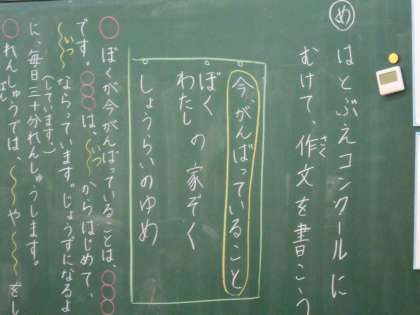 め
はとぶえコンクールに
むけて、作文を書こう
さく
今、がんばっていること
ぼく
わたし の家ぞく
しょうらいのゆめ
○ ぼくが今がんばっていることは、○○○
です。○○○は、いつ からはじめて、
いつ ならっています。じょうずになるよ
(しています。)
に、毎日三十分れんしゅうします。
○ れんしゅうでは、〜や〜をし